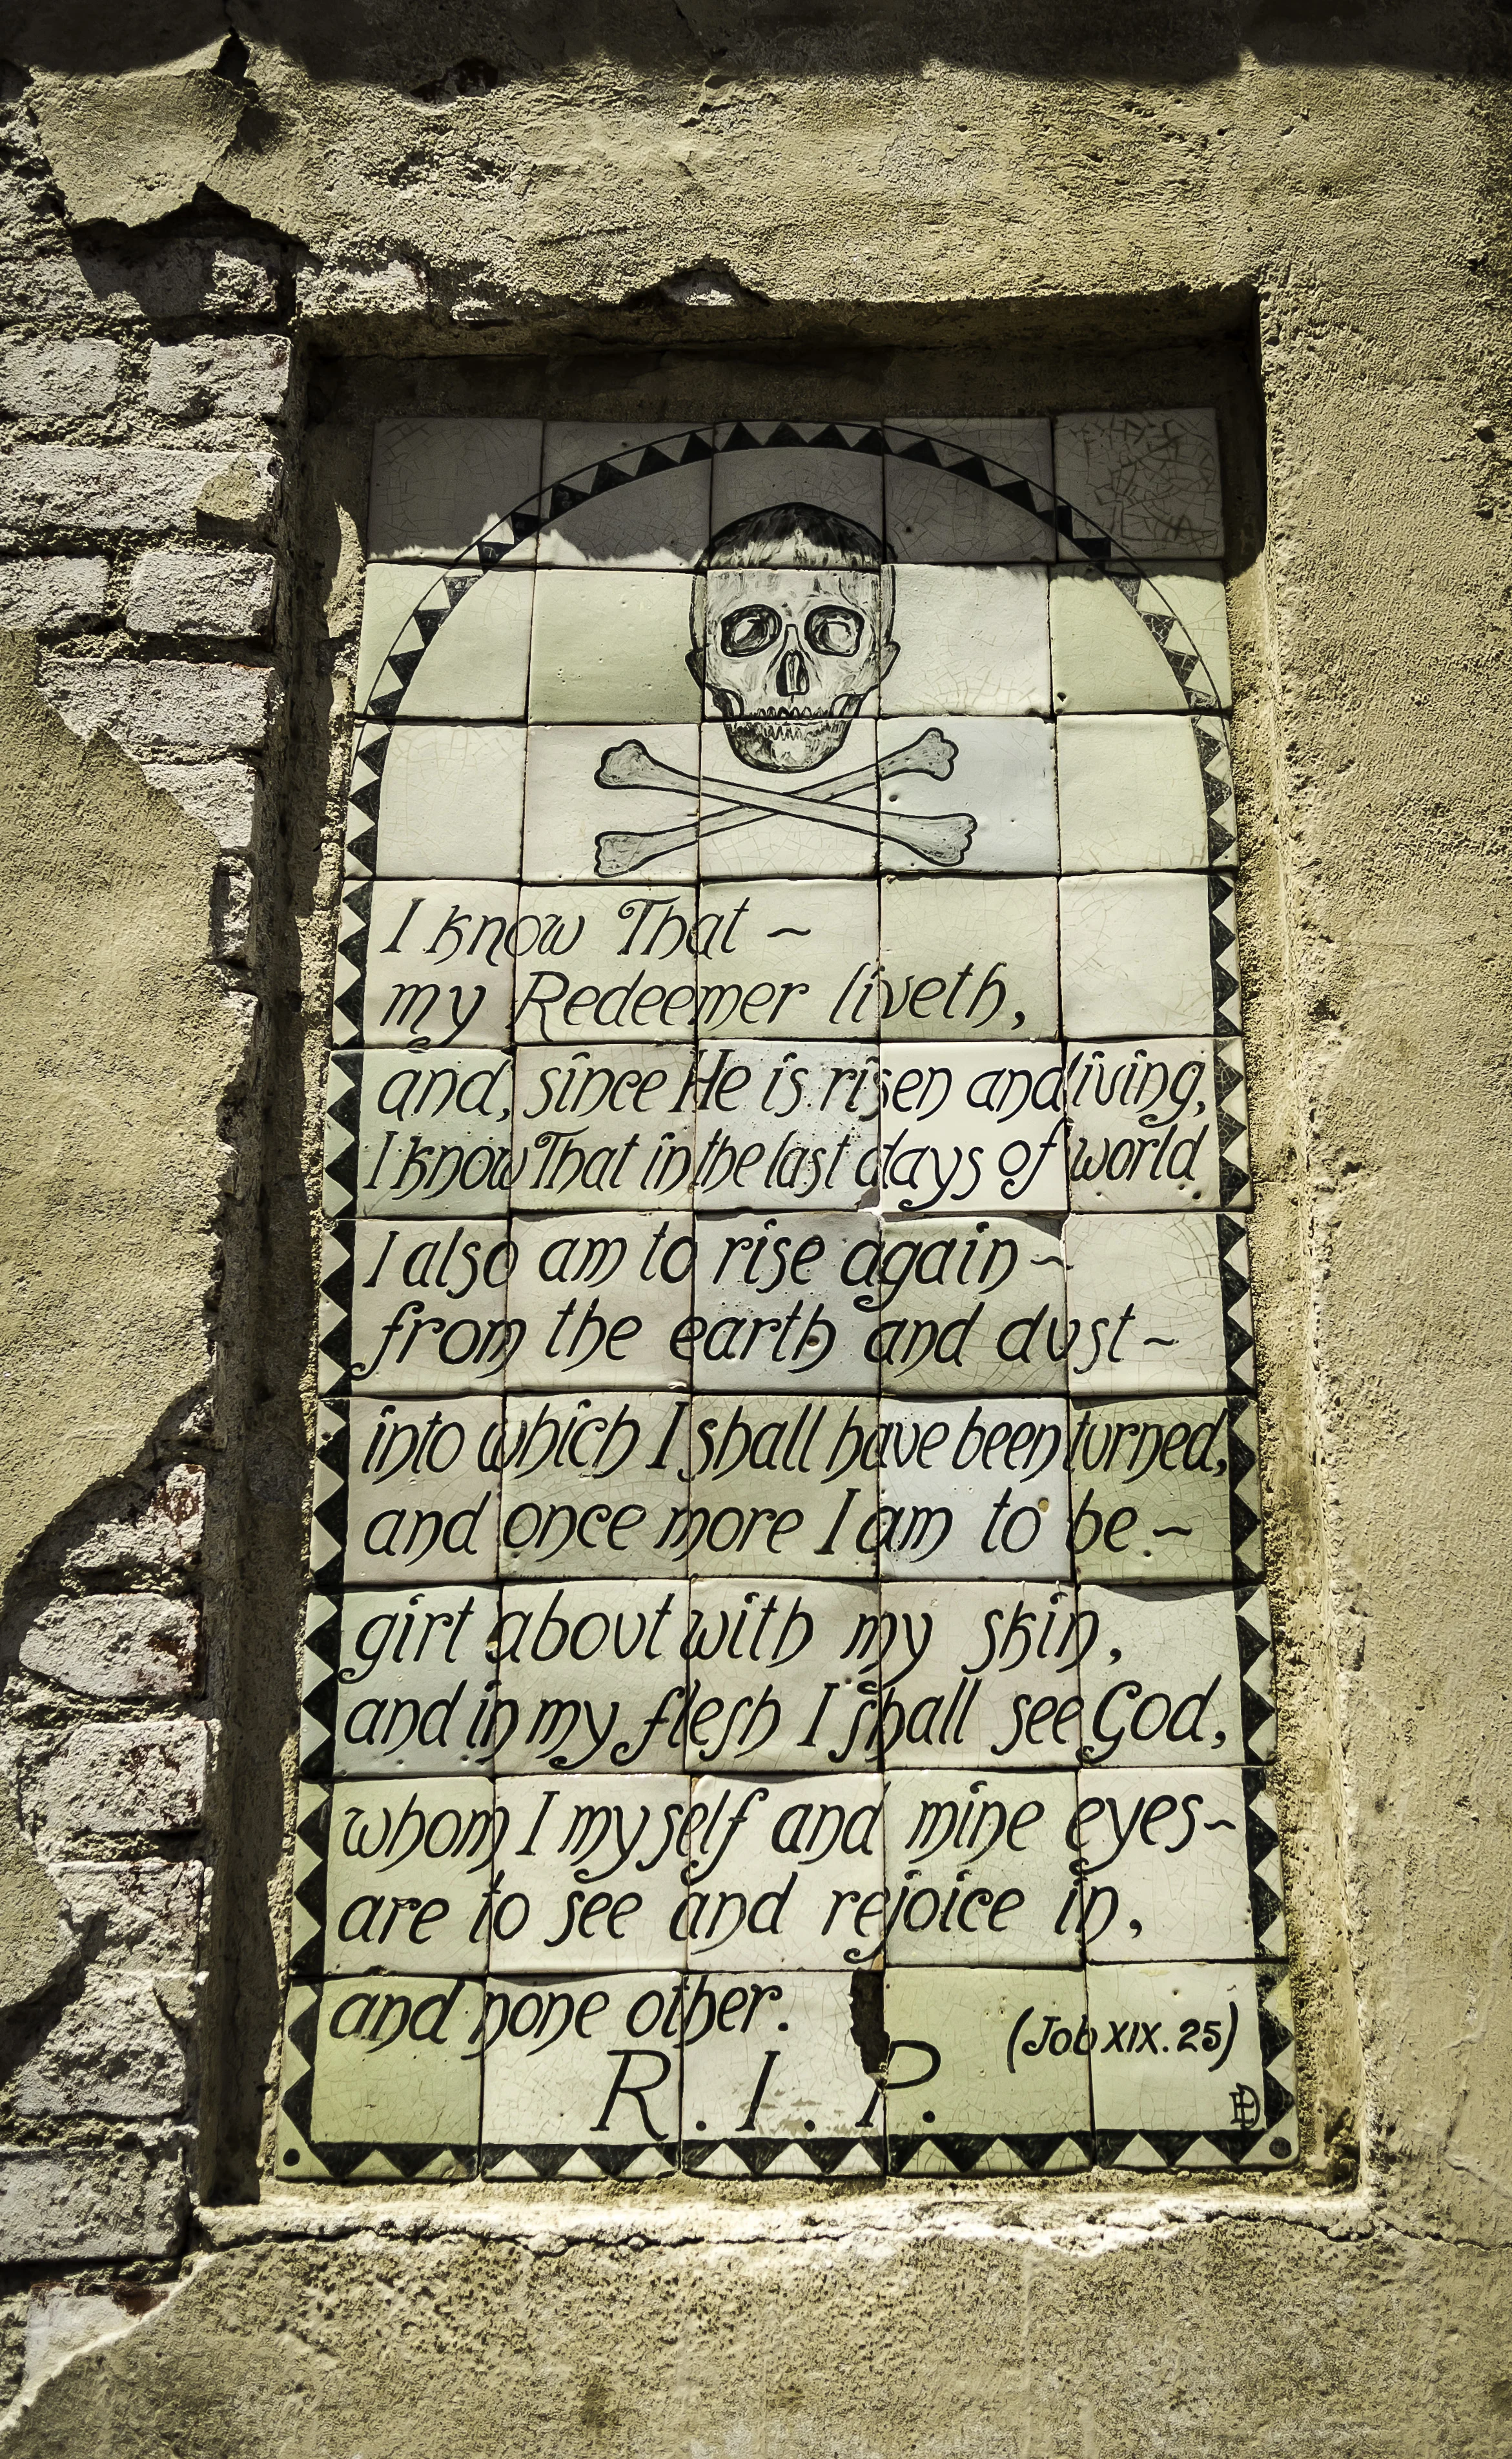 I know That ~
my Redeemer liveth,
and, since He is risen and living,
I know That in the last days of world
I also am to rise again ~
from the earth and dust ~
into which I shall have been turned,
and once more I am to be ~
girt about with my skin,
and in my flesh I shall see God,
whom I myself and mine eyes ~
are to see and rejoice in,
and none other.
(Job XIX. 25)
R. I. P.